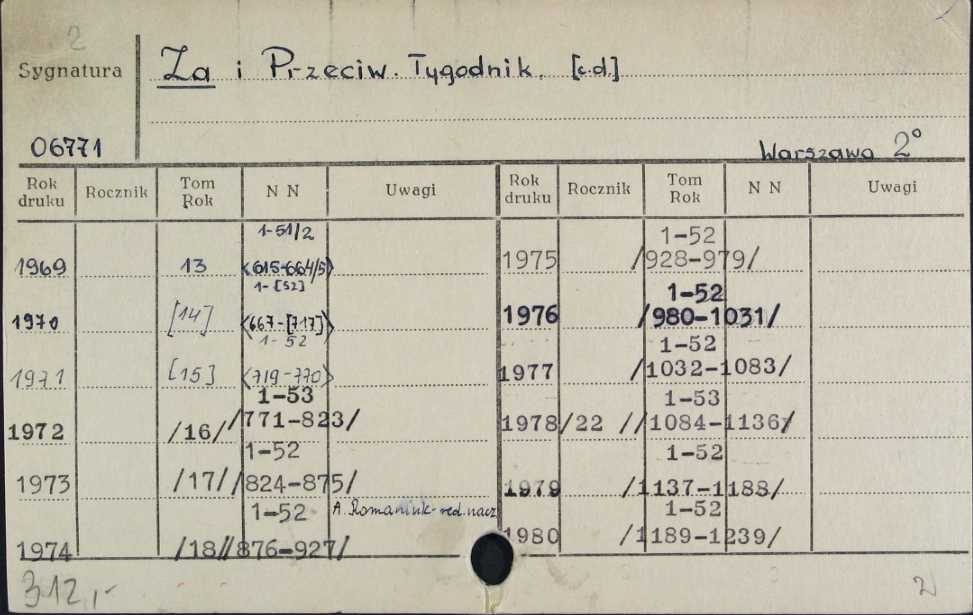 2
Sygnatura
Za i Przeciw. Tygodnik. [c.d.]
06771
Warszawa 2°
Rok druku Rocznik Tom Rok N N Uwagi Rok druku Rocznik Tom Rok N N Uwagi
1-51/2
1969 13 <615-664/5>
1-[52]
1970 [14] <667-[717]>
1-52
1971 [15] <719-770>
1-53
1972 /16/ /771-823/
1-52
1973 /17/ /824-875/
1-52 A. Romaniuk-red.nacz
1974 /18/ /876-927/
1-52
1975 /928-979/
1-52
1976 /980-1031/
1-52
1977 /1032-1083/
1-53
1978 /22 / /1084-1136/
1-52
1979 /1137-1188/
1-52
1980 /1189-1239/
312,-
2